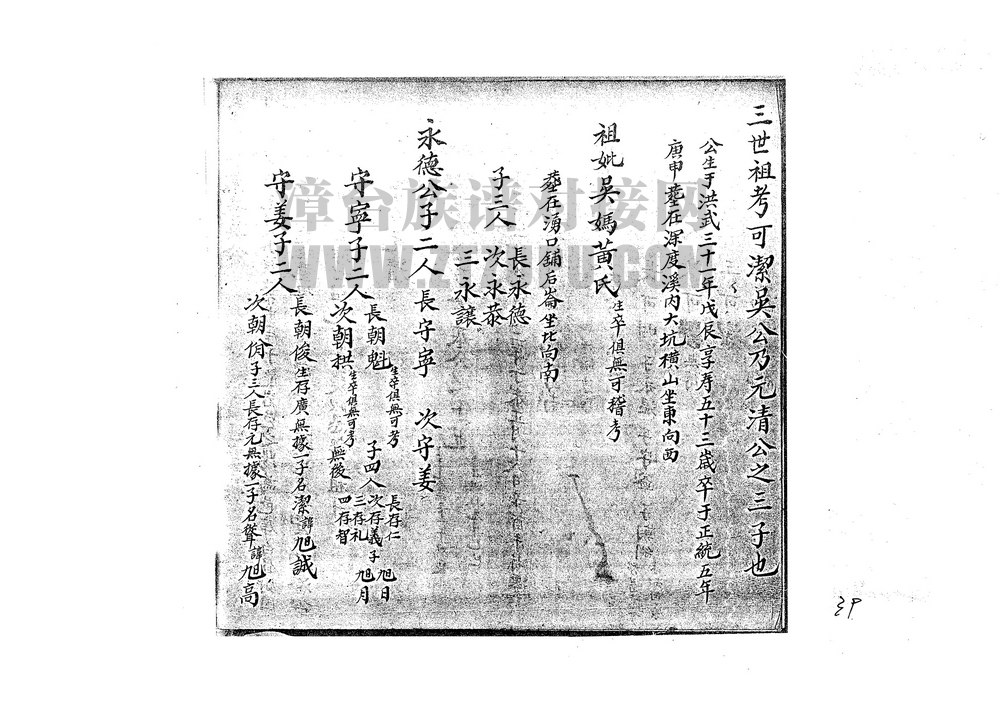 三世祖考可潔吳公乃元清公之三子也
公生于洪武三十一年戊辰享寿五十三歲卒于正統五年
庚申塟在深度溪内大坑横山坐東向西
祖妣吳媽黄氏 生卒俱無可稽考
塟在湧口舖后崙坐北向南
子三人 長永德
次永恭
三永讓
永德公子二人 長守寧 次守姜
守寧子二人 長朝魁 生卒俱無可考 子四人 長存仁
次存義子 旭日 旭月
三存礼
四存智
次朝拱 生卒俱無可考 無後
守姜子二人 長朝俊 生存廣無據一子名潔諱旭誠
次朝佾子三人長存元無據一子名聳諱旭高
漳台族谱对接网
WWW.ZTZUPU.COM